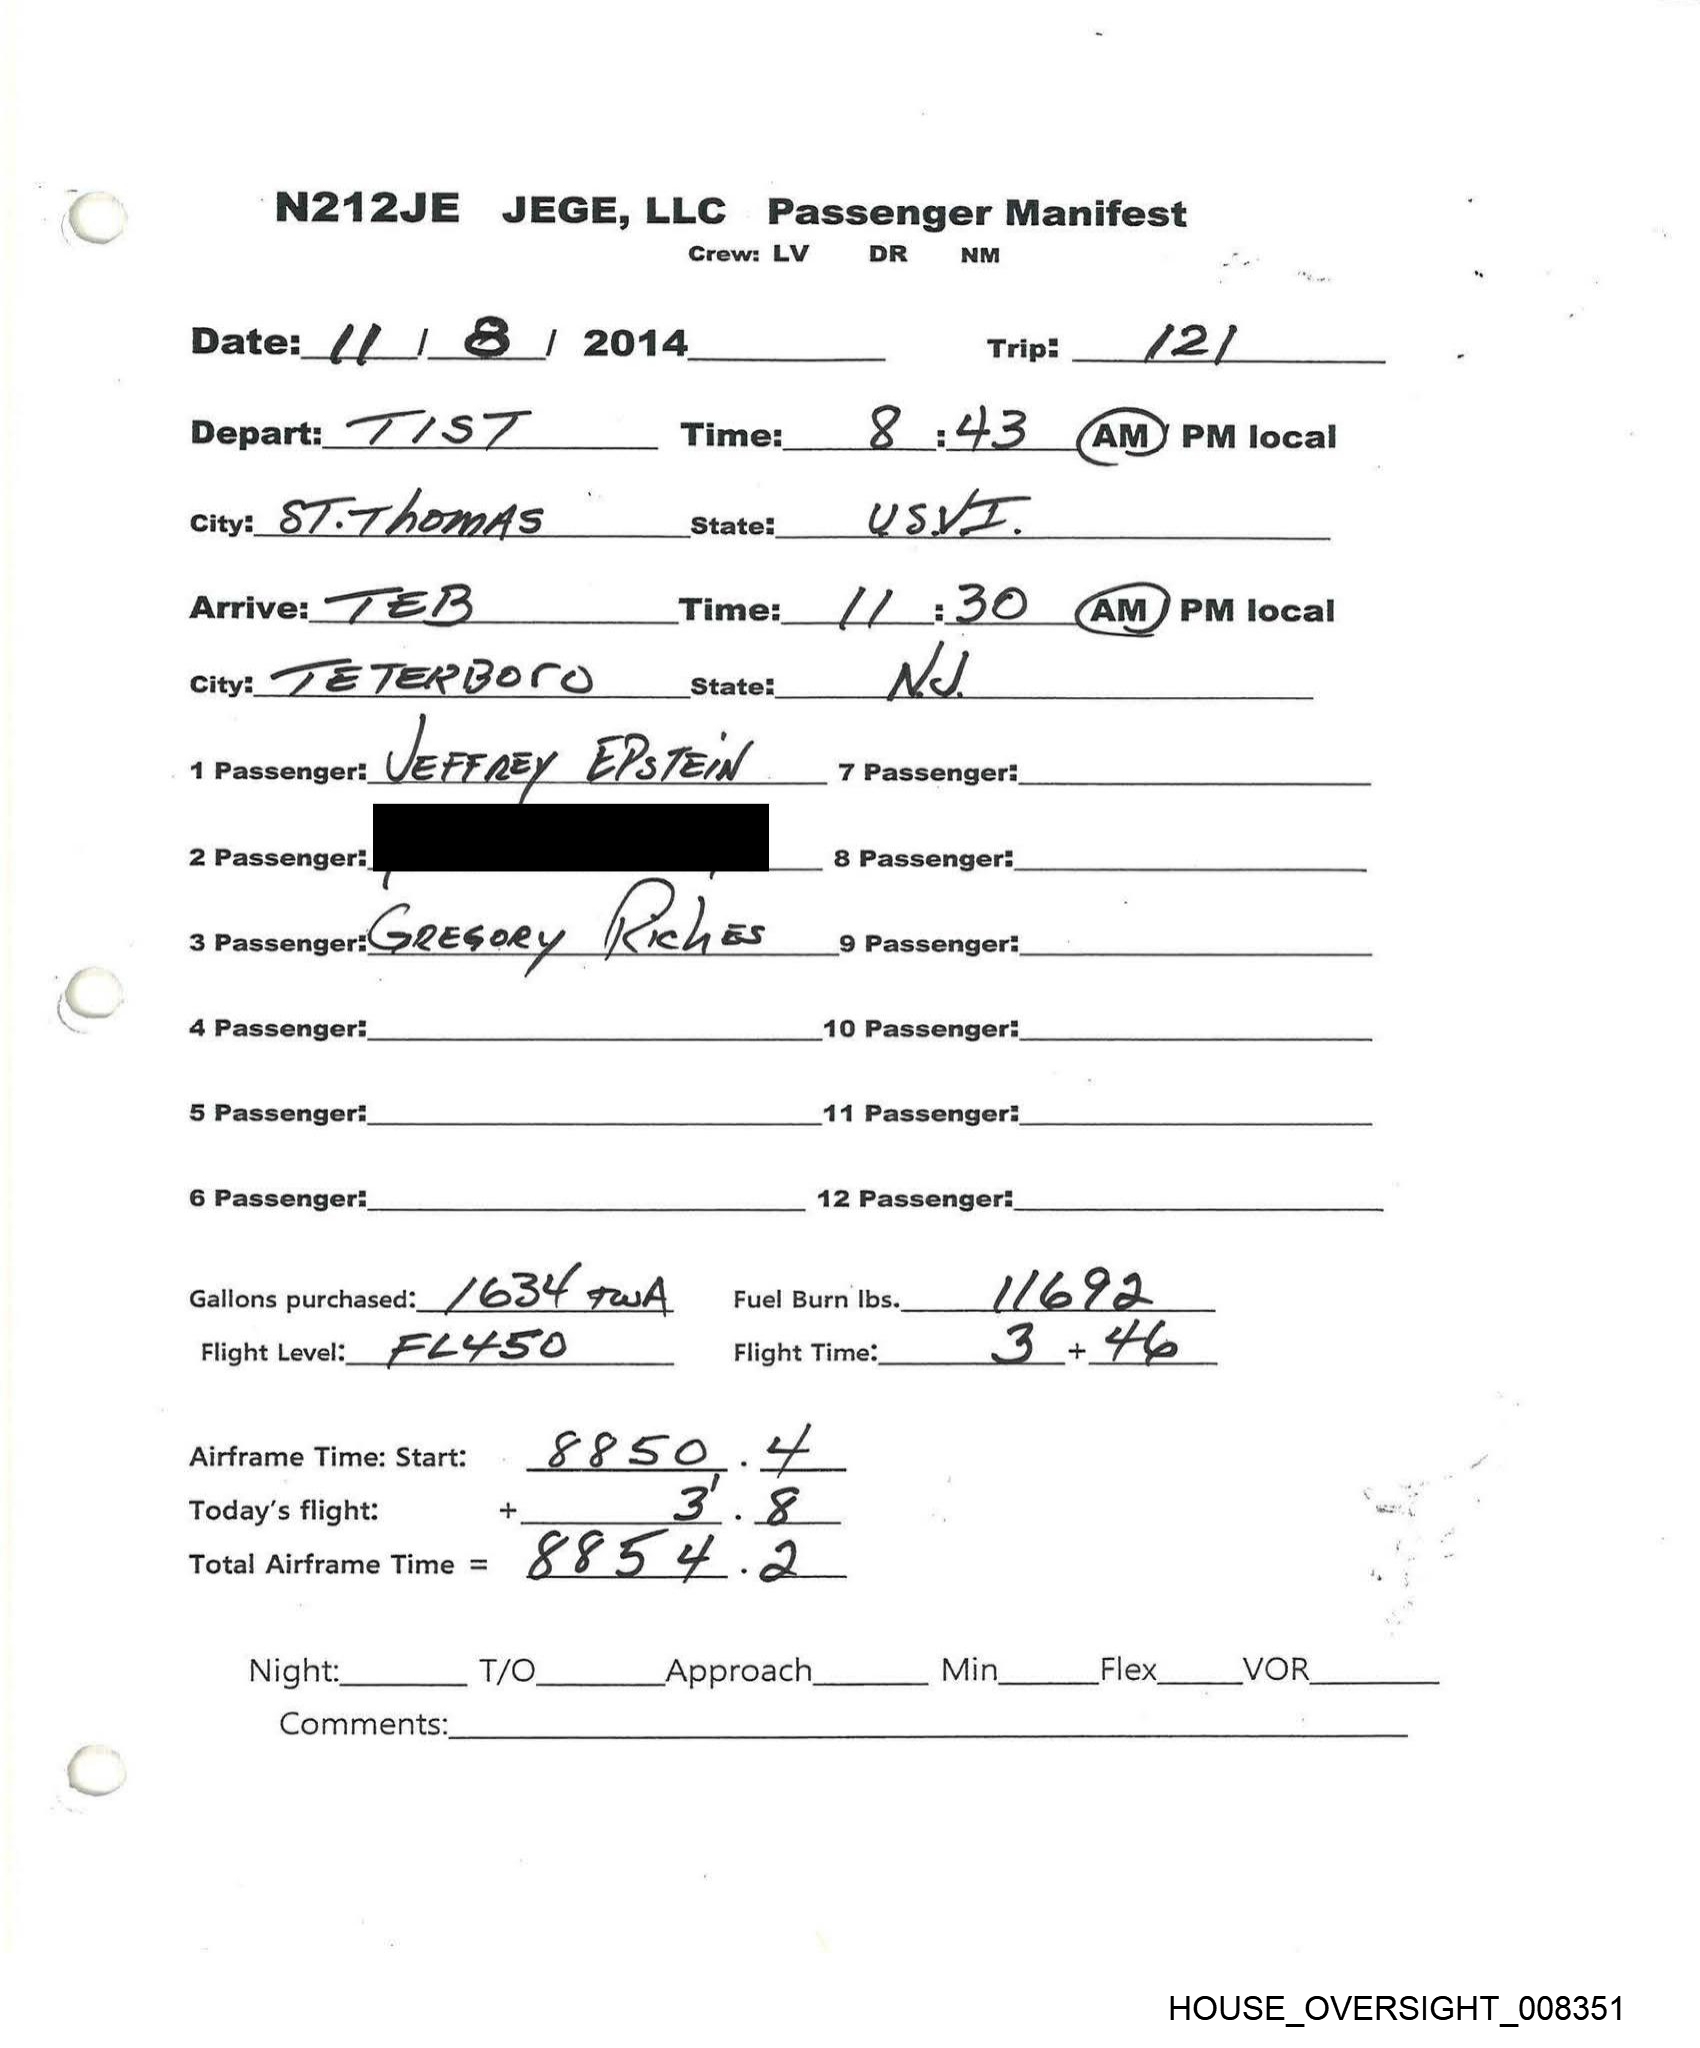 N212JE JEGE, LLC Passenger Manifest
Crew: LV DR NM
Date: 11 / 8 / 2014 Trip: 121
Depart: TIST Time: 8 : 43 AM PM local
City: ST. ThOMAS State: USVI.
Arrive: TEB Time: 11 : 30 AM PM local
City: TETERBOrO State: N.J.
1 Passenger: JEFFREY EPSTEiN 7 Passenger:
2 Passenger: 8 Passenger:
3 Passenger: GREGORY RichES 9 Passenger:
4 Passenger: 10 Passenger:
5 Passenger: 11 Passenger:
6 Passenger: 12 Passenger:
Gallons purchased: 1634 TWA Fuel Burn lbs. 11692
Flight Level: FL450 Flight Time: 3 + 46
Airframe Time: Start: 8850 . 4
Today's flight: + 3 . 8
Total Airframe Time = 8854 . 2
Night: T/O Approach Min Flex VOR
Comments:
HOUSE_OVERSIGHT_008351